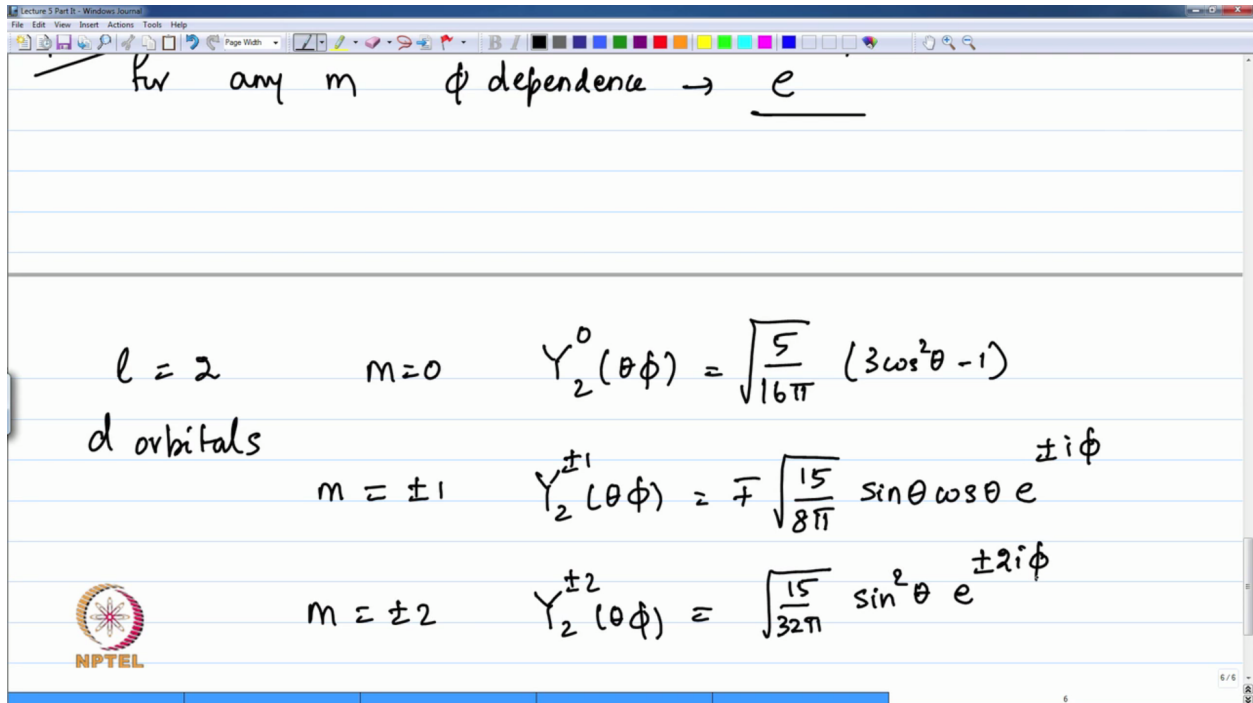 Lecture 5 Part It - Windows Journal
File Edit View Insert Actions Tools Help
Page Width
for any m ϕ dependence → e
l = 2 m=0 Y₂⁰(θϕ) = √(5/16π) (3cos²θ - 1)
d orbitals
m = ±1 Y₂^±1(θϕ) = ∓ √(15/8π) sinθ cosθ e^±iϕ
m = ±2 Y₂^±2(θϕ) = √(15/32π) sin²θ e^±2iϕ
NPTEL
6/6
6